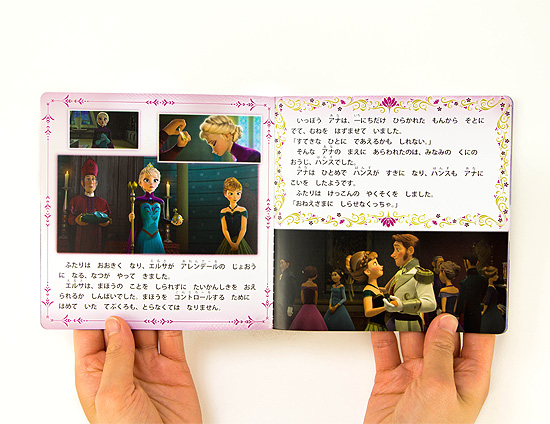 ふたりは おおきく なり、エルサが アレンデールの じょおう
に なる、なつが やって きました。
エルサは、まほうの ことを しられずに たいかんしきを おえ
られるか しんぱいでした。まほうを コントロールする ために
はめて いた てぶくろも、とらなくては なりません。
いっぽう アナは、一にちだけ ひらかれた もんから そとに
でて、むねを はずませて いました。
「すてきな ひとに であえるかも しれない。」
そんな アナの まえに あらわれたのは、みなみの くにの
おうじ、ハンスでした。
アナは ひとめで ハンスが すきに なり、ハンスも アナに
こいを したようです。
ふたりは けっこんの やくそくを しました。
「おねえさまに しらせなくっちゃ。」